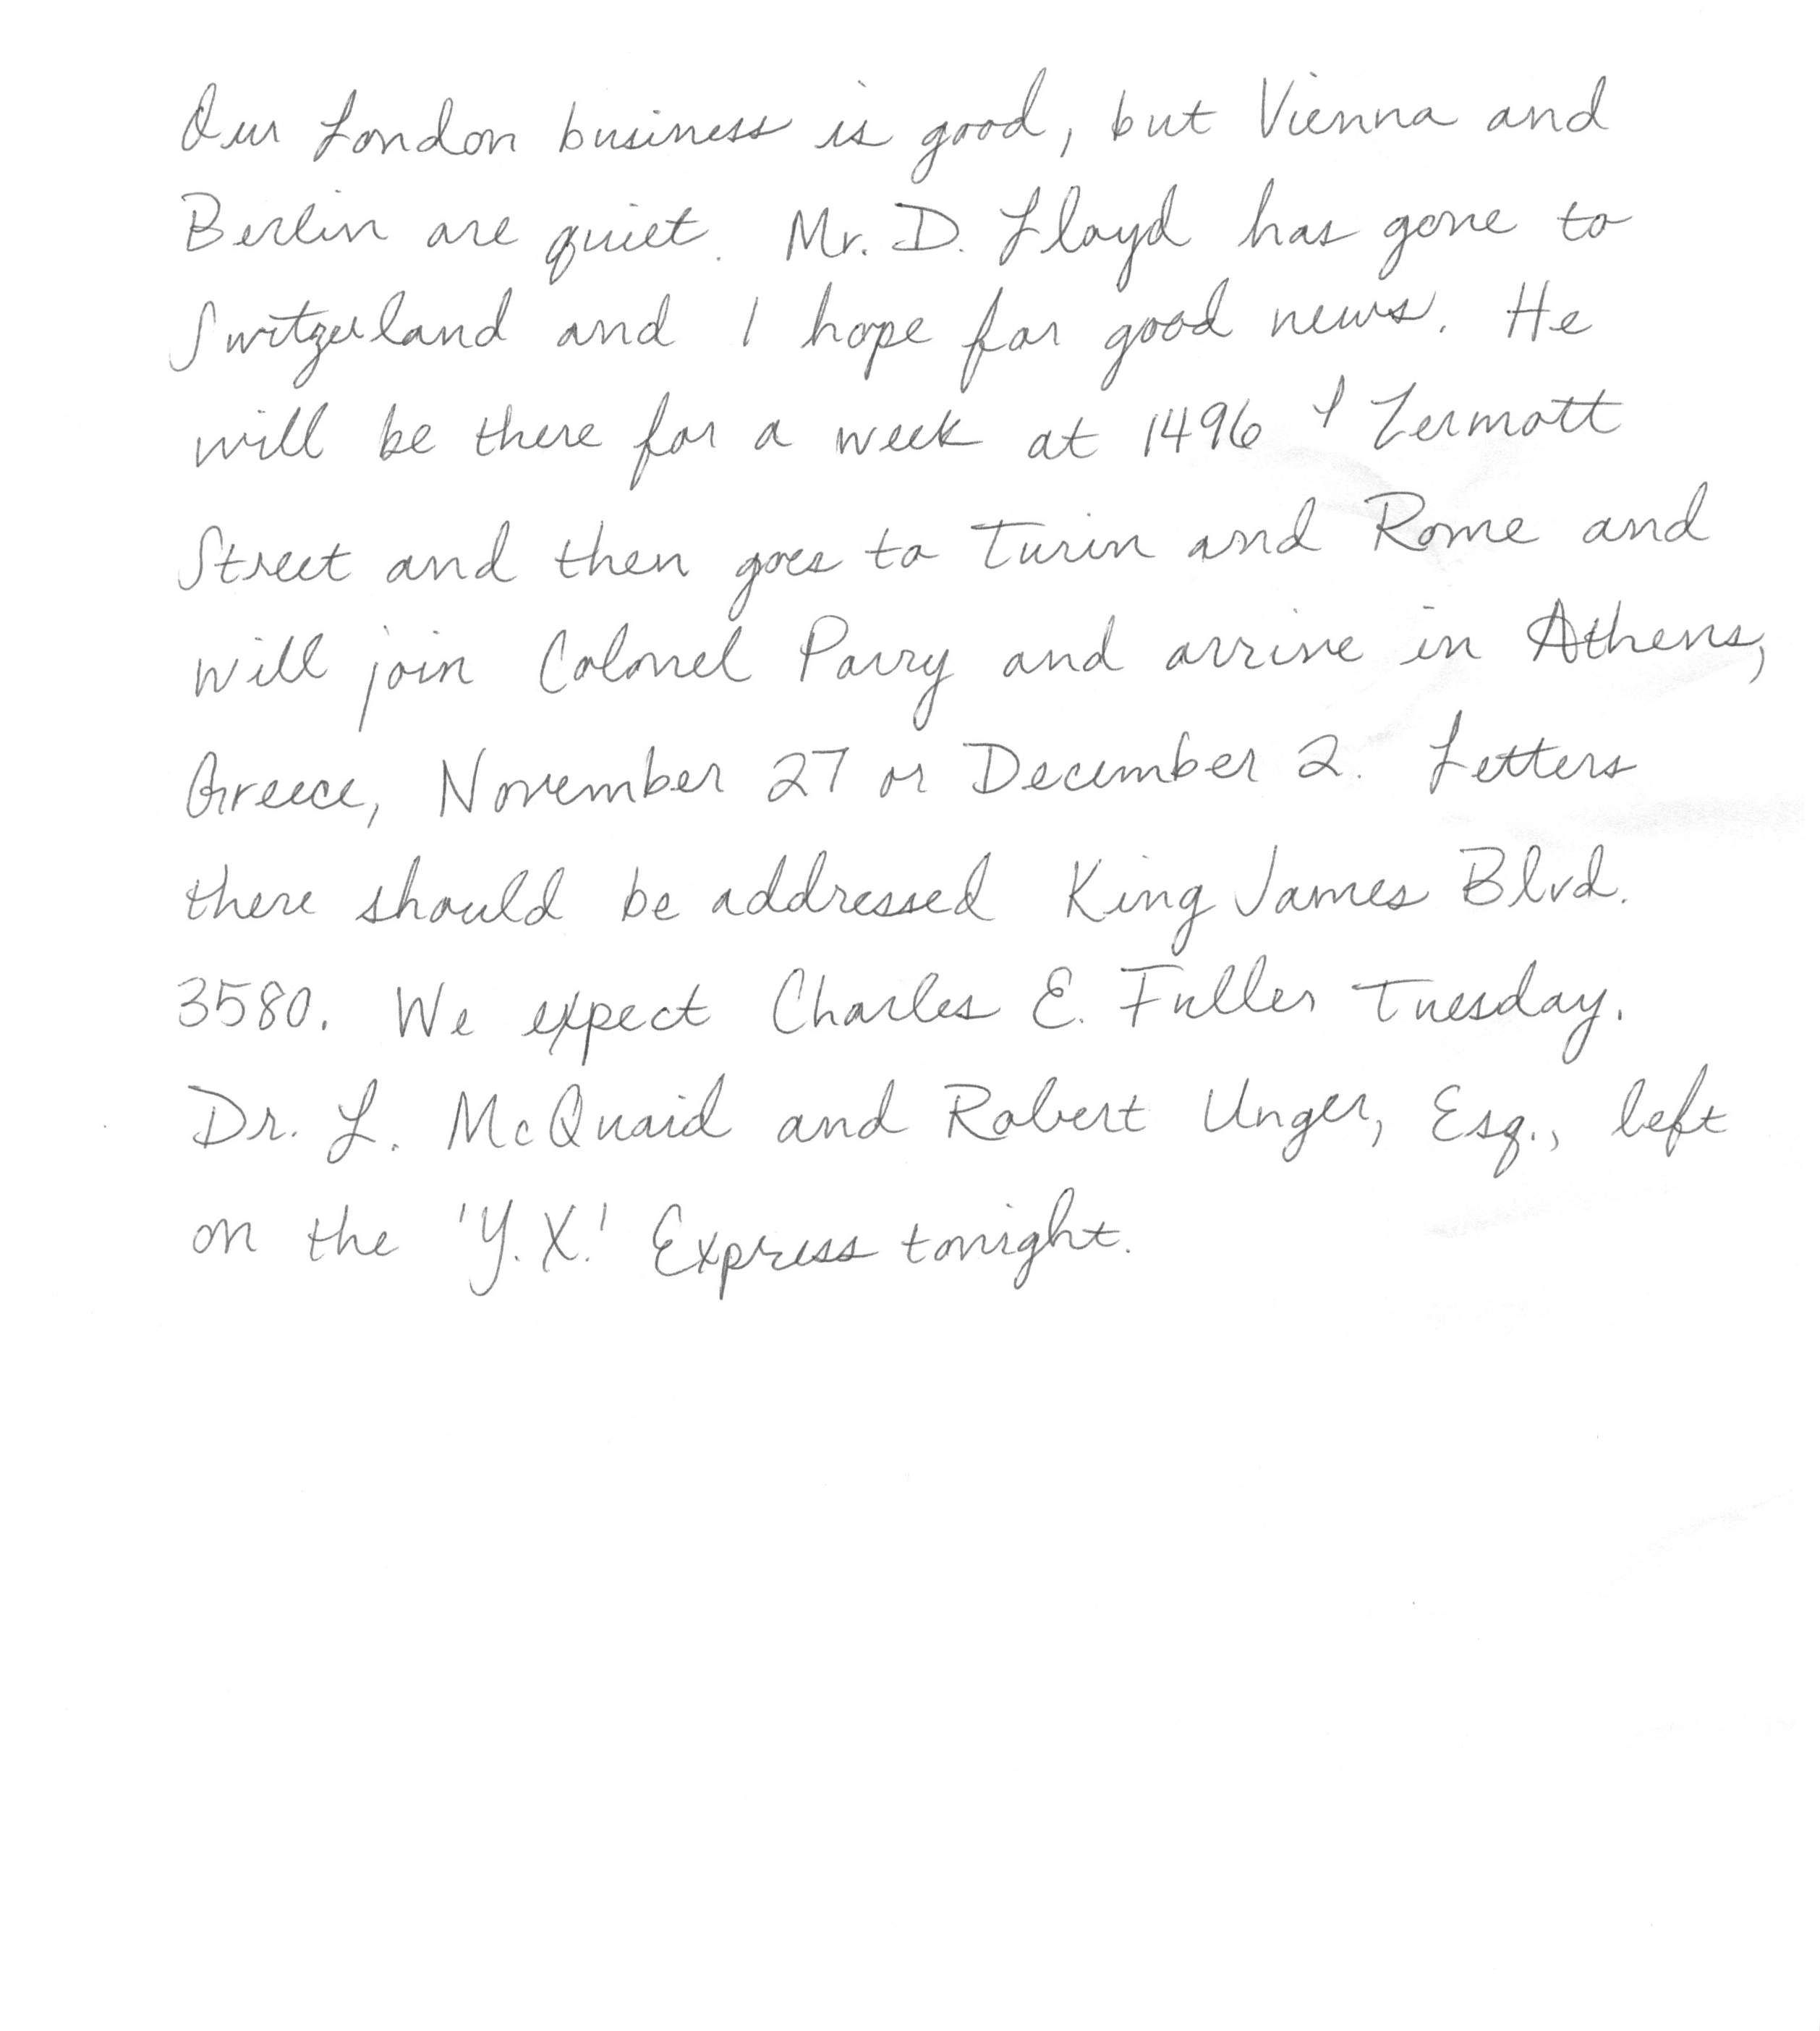 Our London business is good, but Vienna and
Berlin are quiet. Mr. D. Lloyd has gone to
Switzerland and I hope for good news. He
will be there for a week at 1496 Zermott
Street and then goes to Turin and Rome and
will join Colonel Parry and arrive in Athens,
Greece, November 27 or December 2. Letters
there should be addressed King James Blvd.
3580. We expect Charles E. Fuller Tuesday.
Dr. L. McQuaid and Robert Unger, Esq., left
on the 'Y.X.' Express tonight.